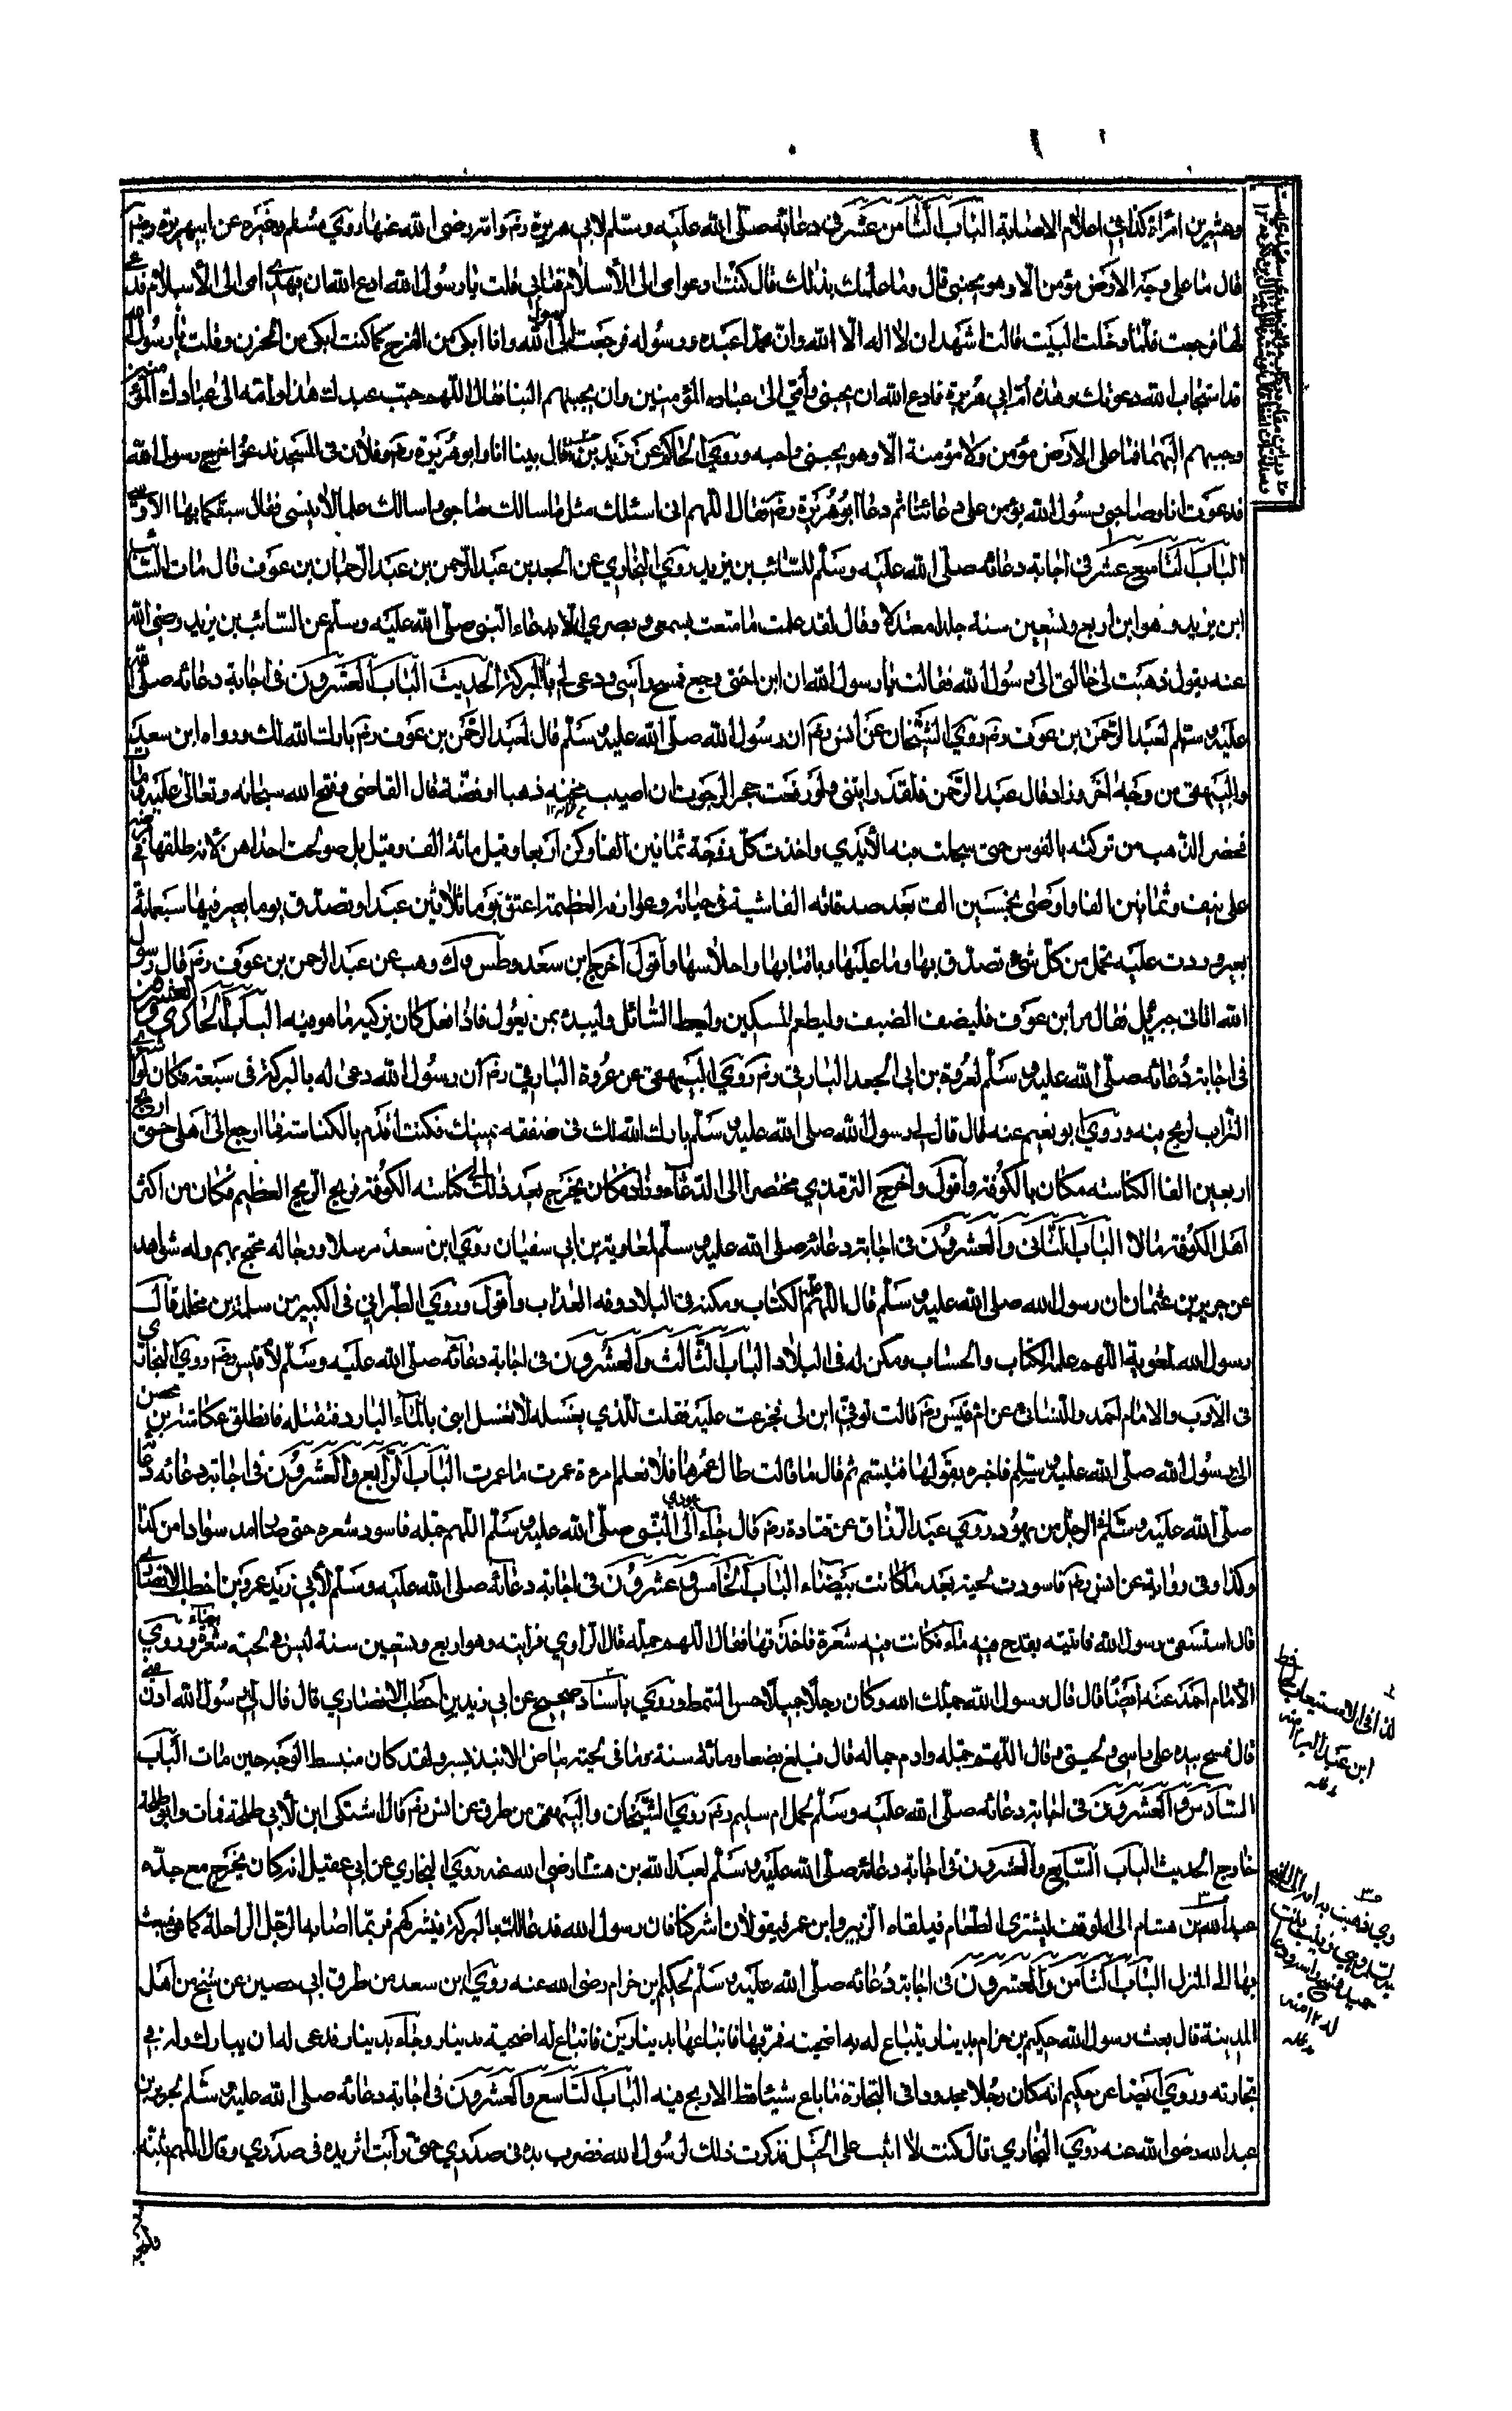 وعشرين امرأة كذا في اعلام الاصابة الباب الثامن عشر في دعائه صلى الله عليه وسلم لابي هريرة رضـ وامه رضى الله عنها روى مسلم وغيره عن ابي هريرة رضـ
قال ما على وجه الارض مؤمن الا وهو يحبنى قال وما علمك بذلك قال كنت ادعو امى الى الاسلام فتابى فقلت يا رسول الله ادع الله ان يهدى امى الى الاسلام فدعى
لها فرجعت فلما دخلت البيت قالت اشهد ان لا اله الا الله وان محمدا عبده ورسوله فرجعت الى رسول الله وانا ابكى من الفرح كما كنت ابكى من الحزن وقلت يا رسول الله
قد استجاب الله دعوتك وهذه ام ابي هريرة فادع الله ان يحببنى وأمى الى عباده المؤمنين وان يحببهم الينا فقال اللهم حبب عبدك هذا وامه الى عبادك المؤمنين
وحببهم اليهما فما على الارض مؤمن ولا مؤمنة الا وهو يحبنى واحبه وروى الحاكم عن زيد بن ثابت قال بينا انا وابو هريرة رضـ وفلان فى المسجد ندعو اخرج رسول الله
فدعوت انا وصاحبى ورسول الله يؤمن على دعائنا ثم دعا ابو هريرة رضـ فقال اللهم انى اسئلك مثل ما سالك صاحبى واسالك علما لا ينسى فقال سبقكما بها الاوسى
الباب التاسع عشر فى اجابة دعائه صلى الله عليه وسلم للسائب بن يزيد روى البخارى عن الجعد بن عبد الرحمن بن عبد الرحمان بن عوف قال مات السائب
ابن يزيد وهو ابن اربع وتسعين سنة جلدا معتدلا وقال لقد علمت ما متعت بسمعى وبصرى الا بدعاء النبى صلى الله عليه وسلم عن السائب بن يزيد رضى الله
عنه يقول ذهبت بى خالتى الى رسول الله فقالت يا رسول الله ان ابن اختى وجع فمسح راسى ودعى لى بالبركة الحديث الباب العشرون فى اجابة دعائه صلى الله
عليه وسلم لعبد الرحمن بن عوف رضـ روى الشيخان عن انس رضـ ان رسول الله صلى الله عليه وسلم قال لعبد الرحمن بن عوف رضـ بارك الله لك ورواه ابن سعد
والبيهقى من وجه آخر وزاد قال عبد الرحمن فلقد رايتنى ولو رفعت حجرا لرجوت ان اصيب تحته ذهبا او فضة قال القاضى وفتح الله سبحانه وتعالى عليه ومات
فحضر الذهب من تركته بالفوس حتى مجلت منه الايدى واخذت كل زوجة ثمانين الفا وكن اربعا وقيل مائة الف وقيل بل صولحت احداهن لانه طلقها فى مرضه
على نيف وثمانين الفا واوصى بخمسين الف بعد صدقاته الفاشية فى حياته وعوارفه العظيمة اعتق يوما ثلاثين عبدا وتصدق يوما بعير فيها سبعمائة
بعير وردت عليه تحمل من كل شئ فتصدق بها وما عليها وباقتابها واحلاسها واقول اخرج ابن سعد وطس وك وهب عن عبد الرحمن بن عوف رضـ قال رسول
الله اتانى جبرئيل فقال مر ابن عوف فليضف الضيف وليطعم المسكين وليعط السائل وليبدء بمن يعول فاذا فعل كان تزكية ما هو فيه الباب الحادى والعشرون
فى اجابة دعائه صلى الله عليه وسلم لعروة بن ابي الجعد البارقى رضـ روى البيهقى عن عروة البارقى رضـ ان رسول الله دعى له بالبركة فى بيعه فكان لو اشترى
التراب لربح فيه وروى ابو نعيم عنه قال قال لى رسول الله صلى الله عليه وسلم بارك الله لك فى صفقه يمينك فكنت اقدم بالكناسة فما ارجع الى اهلى حتى اربح
اربعين الفا الكناسه مكان بالكوفة واقول واخرج الترمذى مختصرا الى الدعاء وزاد فكان يخرج بعد ذلك الى كناسه الكوفة فيربح الربح العظيم فكان من اكثر
اهل الكوفة مالا الباب الثانى والعشرون فى اجابة دعائه صلى الله عليه وسلم لمعاوية بن ابي سفيان روى ابن سعد مرسلا ورجاله محتج بهم وله شواهد
عن حريز بن عثمان ان رسول الله صلى الله عليه وسلم قال اللهم علمه الكتاب ومكنه فى البلاد وقه العذاب واقول وروى الطبرانى فى الكبير من سلمة بن مخلد قال
رسول الله لمعوية اللهم علمه الكتاب والحساب ومكن له فى البلاد الباب الثالث والعشرون فى اجابة دعائه صلى الله عليه وسلم لام قيس رضـ روى البخارى
فى الادب والامام احمد والنسائى عن ام قيس رضـ قالت توفى ابن لى فجزعت عليه فقلت للذى يغسله لا تغسل ابنى بالماء البارد فتقتله فانطلق عكاشة بن محصن
الى رسول الله صلى الله عليه وسلم فاخبره بقولها فتبسم ثم قال ما قالت طال عمرها فلا نعلم امرءة عمرت ما عمرت الباب الرابع والعشرون فى اجابة دعائه دعا
صلى الله عليه وسلم الرجل من يهود روى عبد الرزاق عن قتادة رضـ قال جاء يهودى الى النبى صلى الله عليه وسلم اللهم جمله فاسود شعره حتى صار اشد سوادا من كذا
وكذا وفى رواية عن انس رضـ فاسودت لحيته بعد ما كانت بيضاء الباب الخامس وعشرون فى اجابة دعائه صلى الله عليه وسلم لابي زيد عمرو بن اخطب الانصارى
قال استسقى رسول الله فاتيته بقدح فيه ماء فكانت فيه شعرة فاخذتها فقال اللهم جمله قال الراوى فرايته وهو اربع وتسعين سنة ليس فى لحيته شعرة بيضاء وروى
الامام احمد عنه ايضا قال قال رسول الله جملك الله وكان رجلا جميلا حسن السمط وروى باسناد صحيح عن ابي زيد بن اخطب الانصارى قال قال لى رسول الله ادن منى
قال فمسح بيده على راسى ولحيتى وقال اللهم جمله وادم جماله قال فبلغ بضعا ومائة سنة وما فى لحيته بياض الا نبذ يسير ولقد كان منبسط الوجه حين مات الباب
السادس والعشرون فى اجابة دعائه صلى الله عليه وسلم لحمل ام سليم رضـ روى الشيخان والبيهقى من طرق عن انس رضـ قال اشتكى ابن لابي طلحة فمات وابو طلحة
خارج الحديث الباب السابع والعشرون فى اجابة دعائه صلى الله عليه وسلم لعبد الله بن هشام رضى الله عنه روى البخارى عن ابي عقيل انه كان يخرج مع جده
عبد الله بن هشام الى السوق فيشترى الطعام فيلقاه الزبير وابن عمر فيقولان اشركنا فان رسول الله قد دعا لك بالبركة فيشركهم فربما اصابه الرجل الراحلة كما هى فيبعث
بها الى المنزل الباب الثامن والعشرون فى اجابة دعائه صلى الله عليه وسلم لحكيم ابن حزام رضى الله عنه روى ابن سعد من طرق ابي حصين عن شيخ من اهل
المدينة قال بعث رسول الله حكيم بن حزام بدينار يبتاع له به اضحيته فمر بها فابتاعها بدينار فباعها بدينارين فابتاع له اضحية بدينار وجاء بدينار فدعى له ان يبارك له فى
تجارته وروى ايضا عن حكيم انه كان رجلا مجدودا فى التجارة ما باع شيئا قط الا ربح فيه الباب التاسع والعشرون فى اجابة دعائه صلى الله عليه وسلم لجرير بن
عبد الله رضى الله عنه روى البخارى قال كنت لا اثبت على الخيل فذكرت ذلك لرسول الله فضرب بيده فى صدرى حتى رأيت اثر يده فى صدرى وقال اللهم ثبته
كذا فى الاستيعاب
ابن عبد البر منه